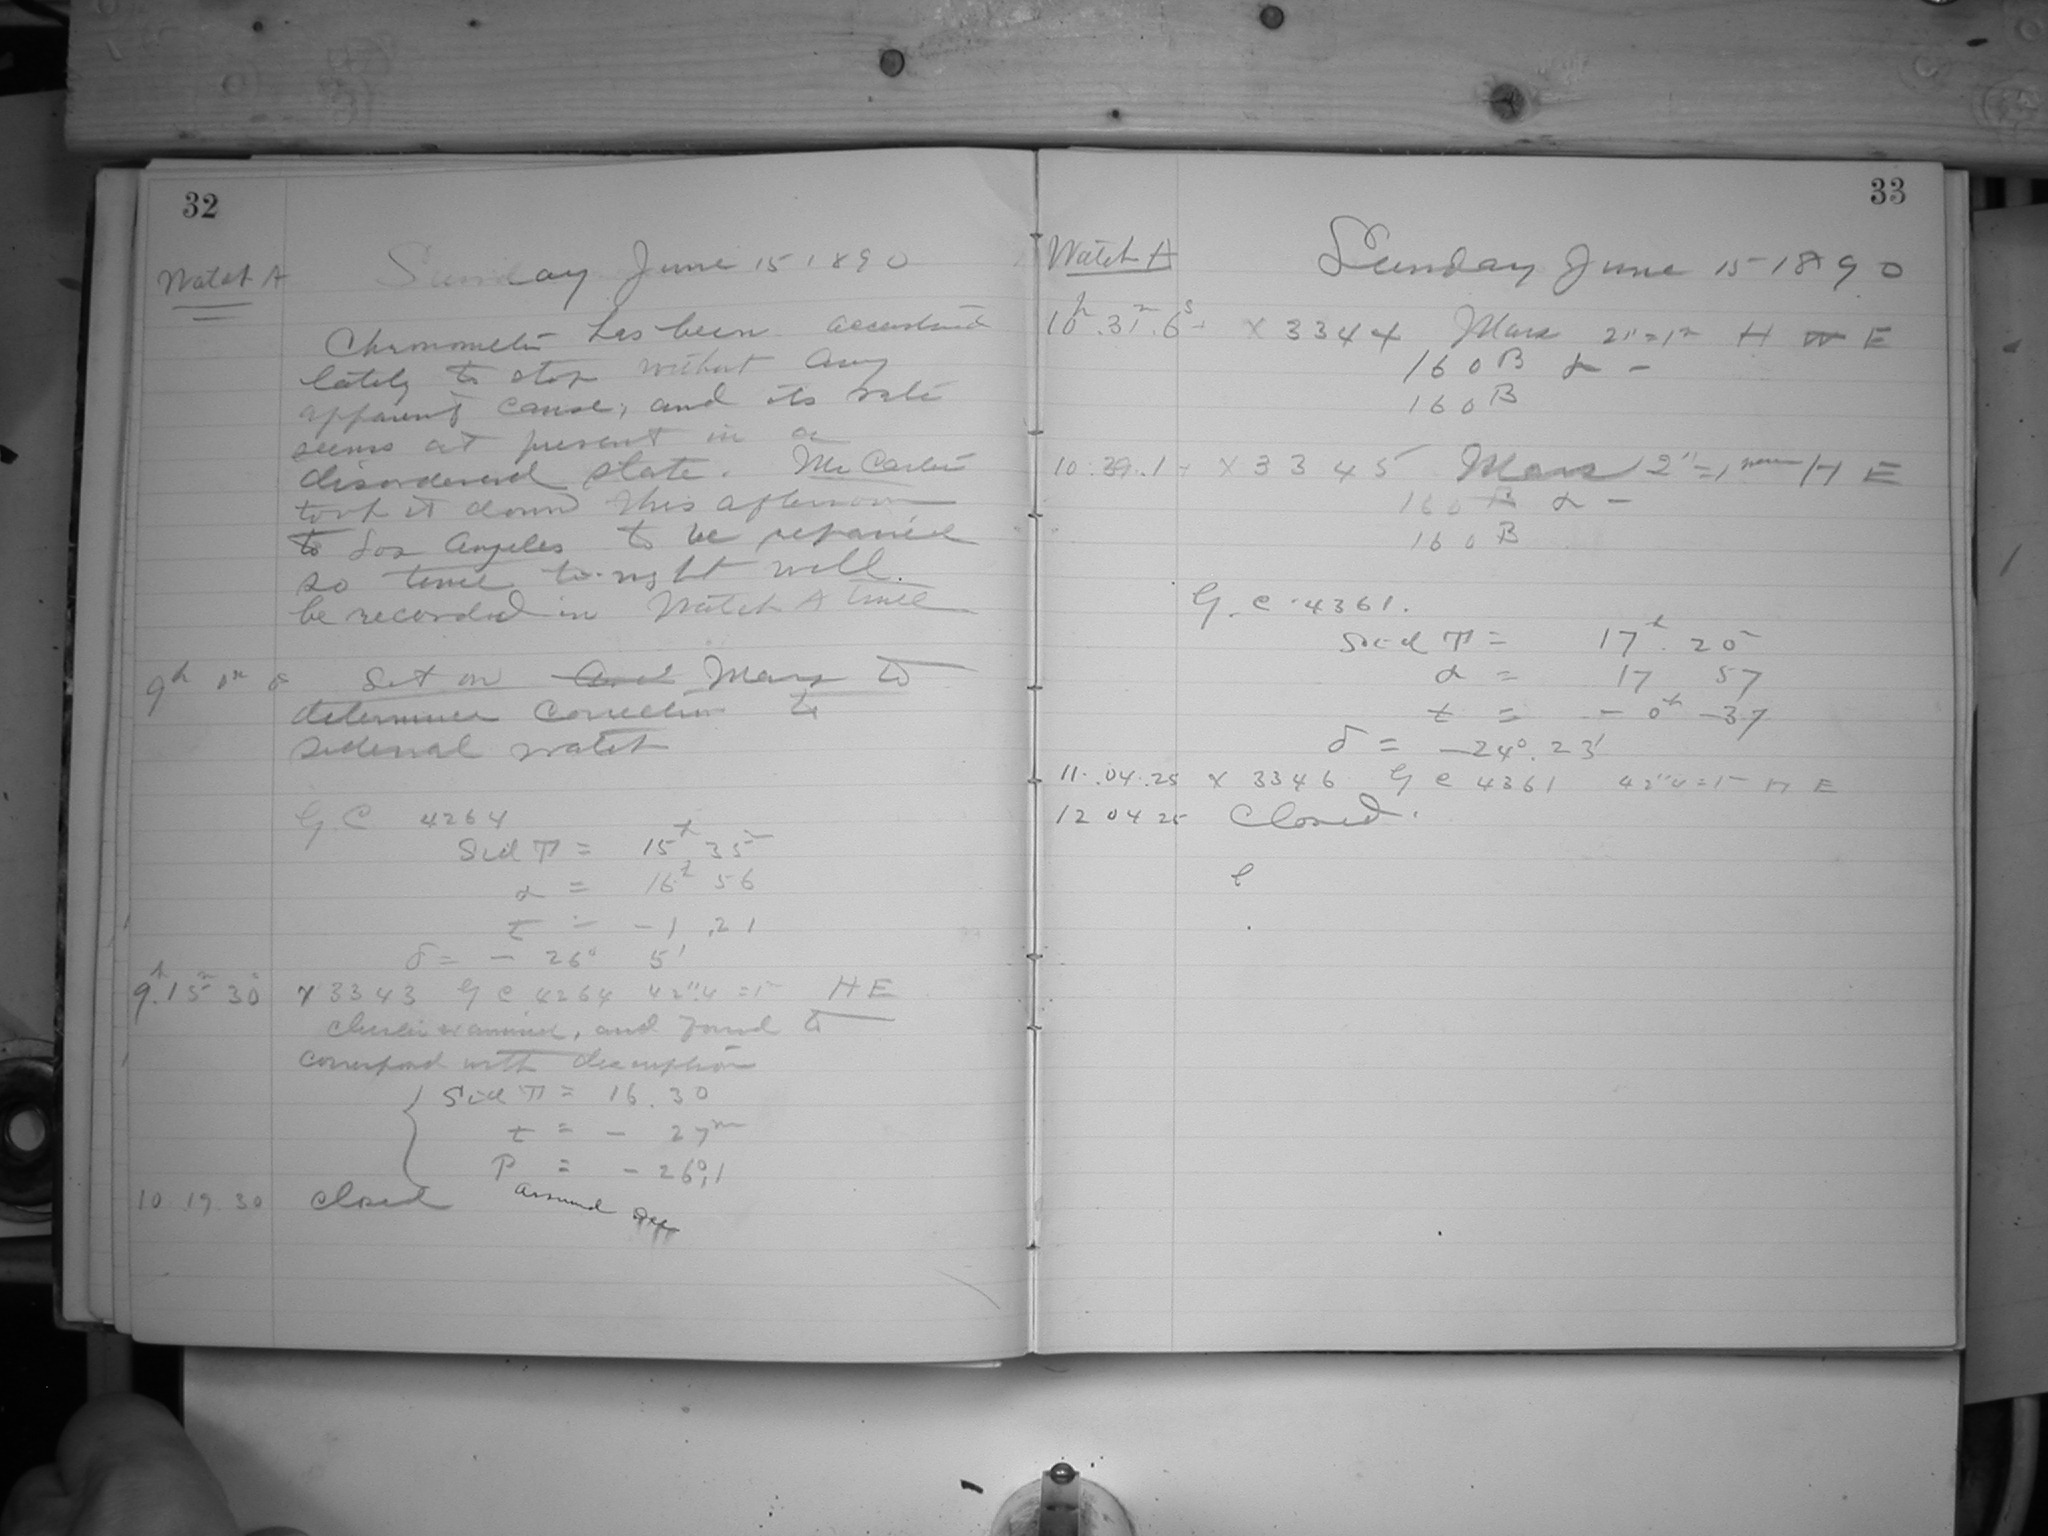 32
Watch A
Sunday June 15 1890
Chronometer has been accustomed
lately to stop without any
apparent cause, and its rate
seems at present in a
disordered state.
took it down this afternoon
to Los Angeles to be repaired
so time to-night will
be recorded in Watch A time
9h 0m 0s Set on Mars to
determine correction to
sidereal watch
G. C 4264
Sid T = 15h 35m
α = 16h 56
t = -1 .21
δ = - 26° 5'
9h.15m 30s X 3343 G C 4264 42".4 = 1m H E
Cluster examined, and found to
correspond with description
Sid T = 16.30
t = - 27m
P = - 26°.1
assumed
10 19 30 Closed
33
Watch A
Sunday June 15 1890
10h.31m.6s X 3344 Mars 2" = 1m H W E
160 B α -
160 B
10.39.1 X 3345 Mars 2" = 1 H E
160 B α -
160 B
G. C. 4361.
Sid T = 17h. 20
α = 17 57
t = - 0h -37
δ = -24°.23'
11.04.25 X 3346 G C 4361 42".4 = 1m H E
12 04 25 Closed.